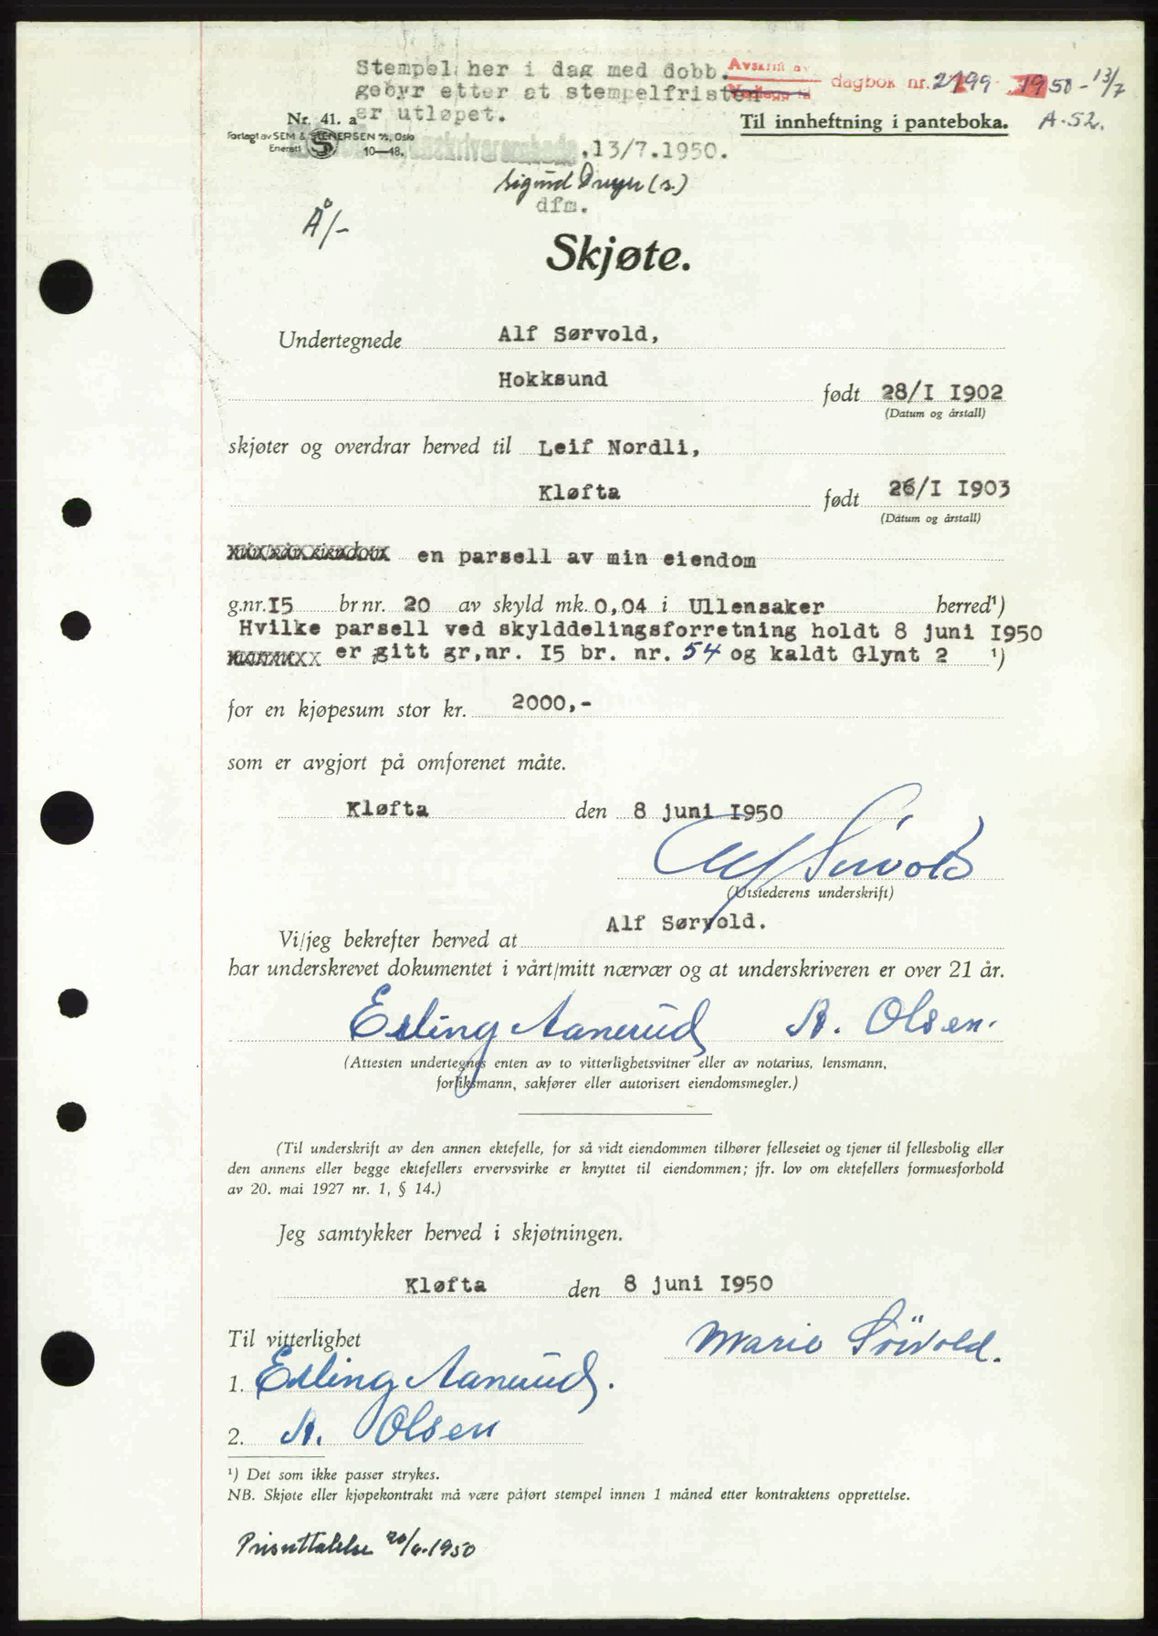 Stempel her i dag med dobb.
gebyr etter at stempelfristen
er utløpet.
Avskrift av
dagbok nr. 2199 1950 - 13/7
Nr. 41. a
Til innheftning i panteboka. A-52.
Forlagt av SEM & STENERSEN A/S, Oslo
Enerett S 10—48.
.13/7.1950.
Sigurd Dreyer (s.)
dfm.
Å/-
Skjøte.
Undertegnede Alf Sørvold,
Hokksund født 28/I I902
(Datum og årstall)
skjøter og overdrar herved til Leif Nordli,
Kløfta født 26/I I903
(Datum og årstall)
en parsell av min eiendom
g.nr. I5 br nr. 20 av skyld mk. 0,04 i Ullensaker herred¹)
Hvilke parsell ved skylddelingsforretning holdt 8 juni I950
er gitt gr,nr. I5 br. nr. 54 og kaldt Glynt 2 ¹)
for en kjøpesum stor kr. 2000,-
som er avgjort på omforenet måte.
Kløfta den 8 juni I950
Alf Sørvold
(Utstederens underskrift)
Vi/jeg bekrefter herved at Alf Sørvold.
har underskrevet dokumentet i vårt/mitt nærvær og at underskriveren er over 21 år.
Erling Aanerud A. Olsen.
(Attesten undertegnes enten av to vitterlighetsvitner eller av notarius, lensmann,
forliksmann, sakfører eller autorisert eiendomsmegler.)
(Til underskrift av den annen ektefelle, for så vidt eiendommen tilhører felleseiet og tjener til fellesbolig eller
den annens eller begge ektefellers ervervsvirke er knyttet til eiendommen; jfr. lov om ektefellers formuesforhold
av 20. mai 1927 nr. 1, § 14.)
Jeg samtykker herved i skjøtningen.
Kløfta den 8 juni I950
Til vitterlighet Marie Sörvold.
1. Erling Aanerud.
2. A. Olsen
¹) Det som ikke passer strykes.
NB. Skjøte eller kjøpekontrakt må være påført stempel innen 1 måned etter kontraktens opprettelse.
Prisuttalelse 20/6-1950